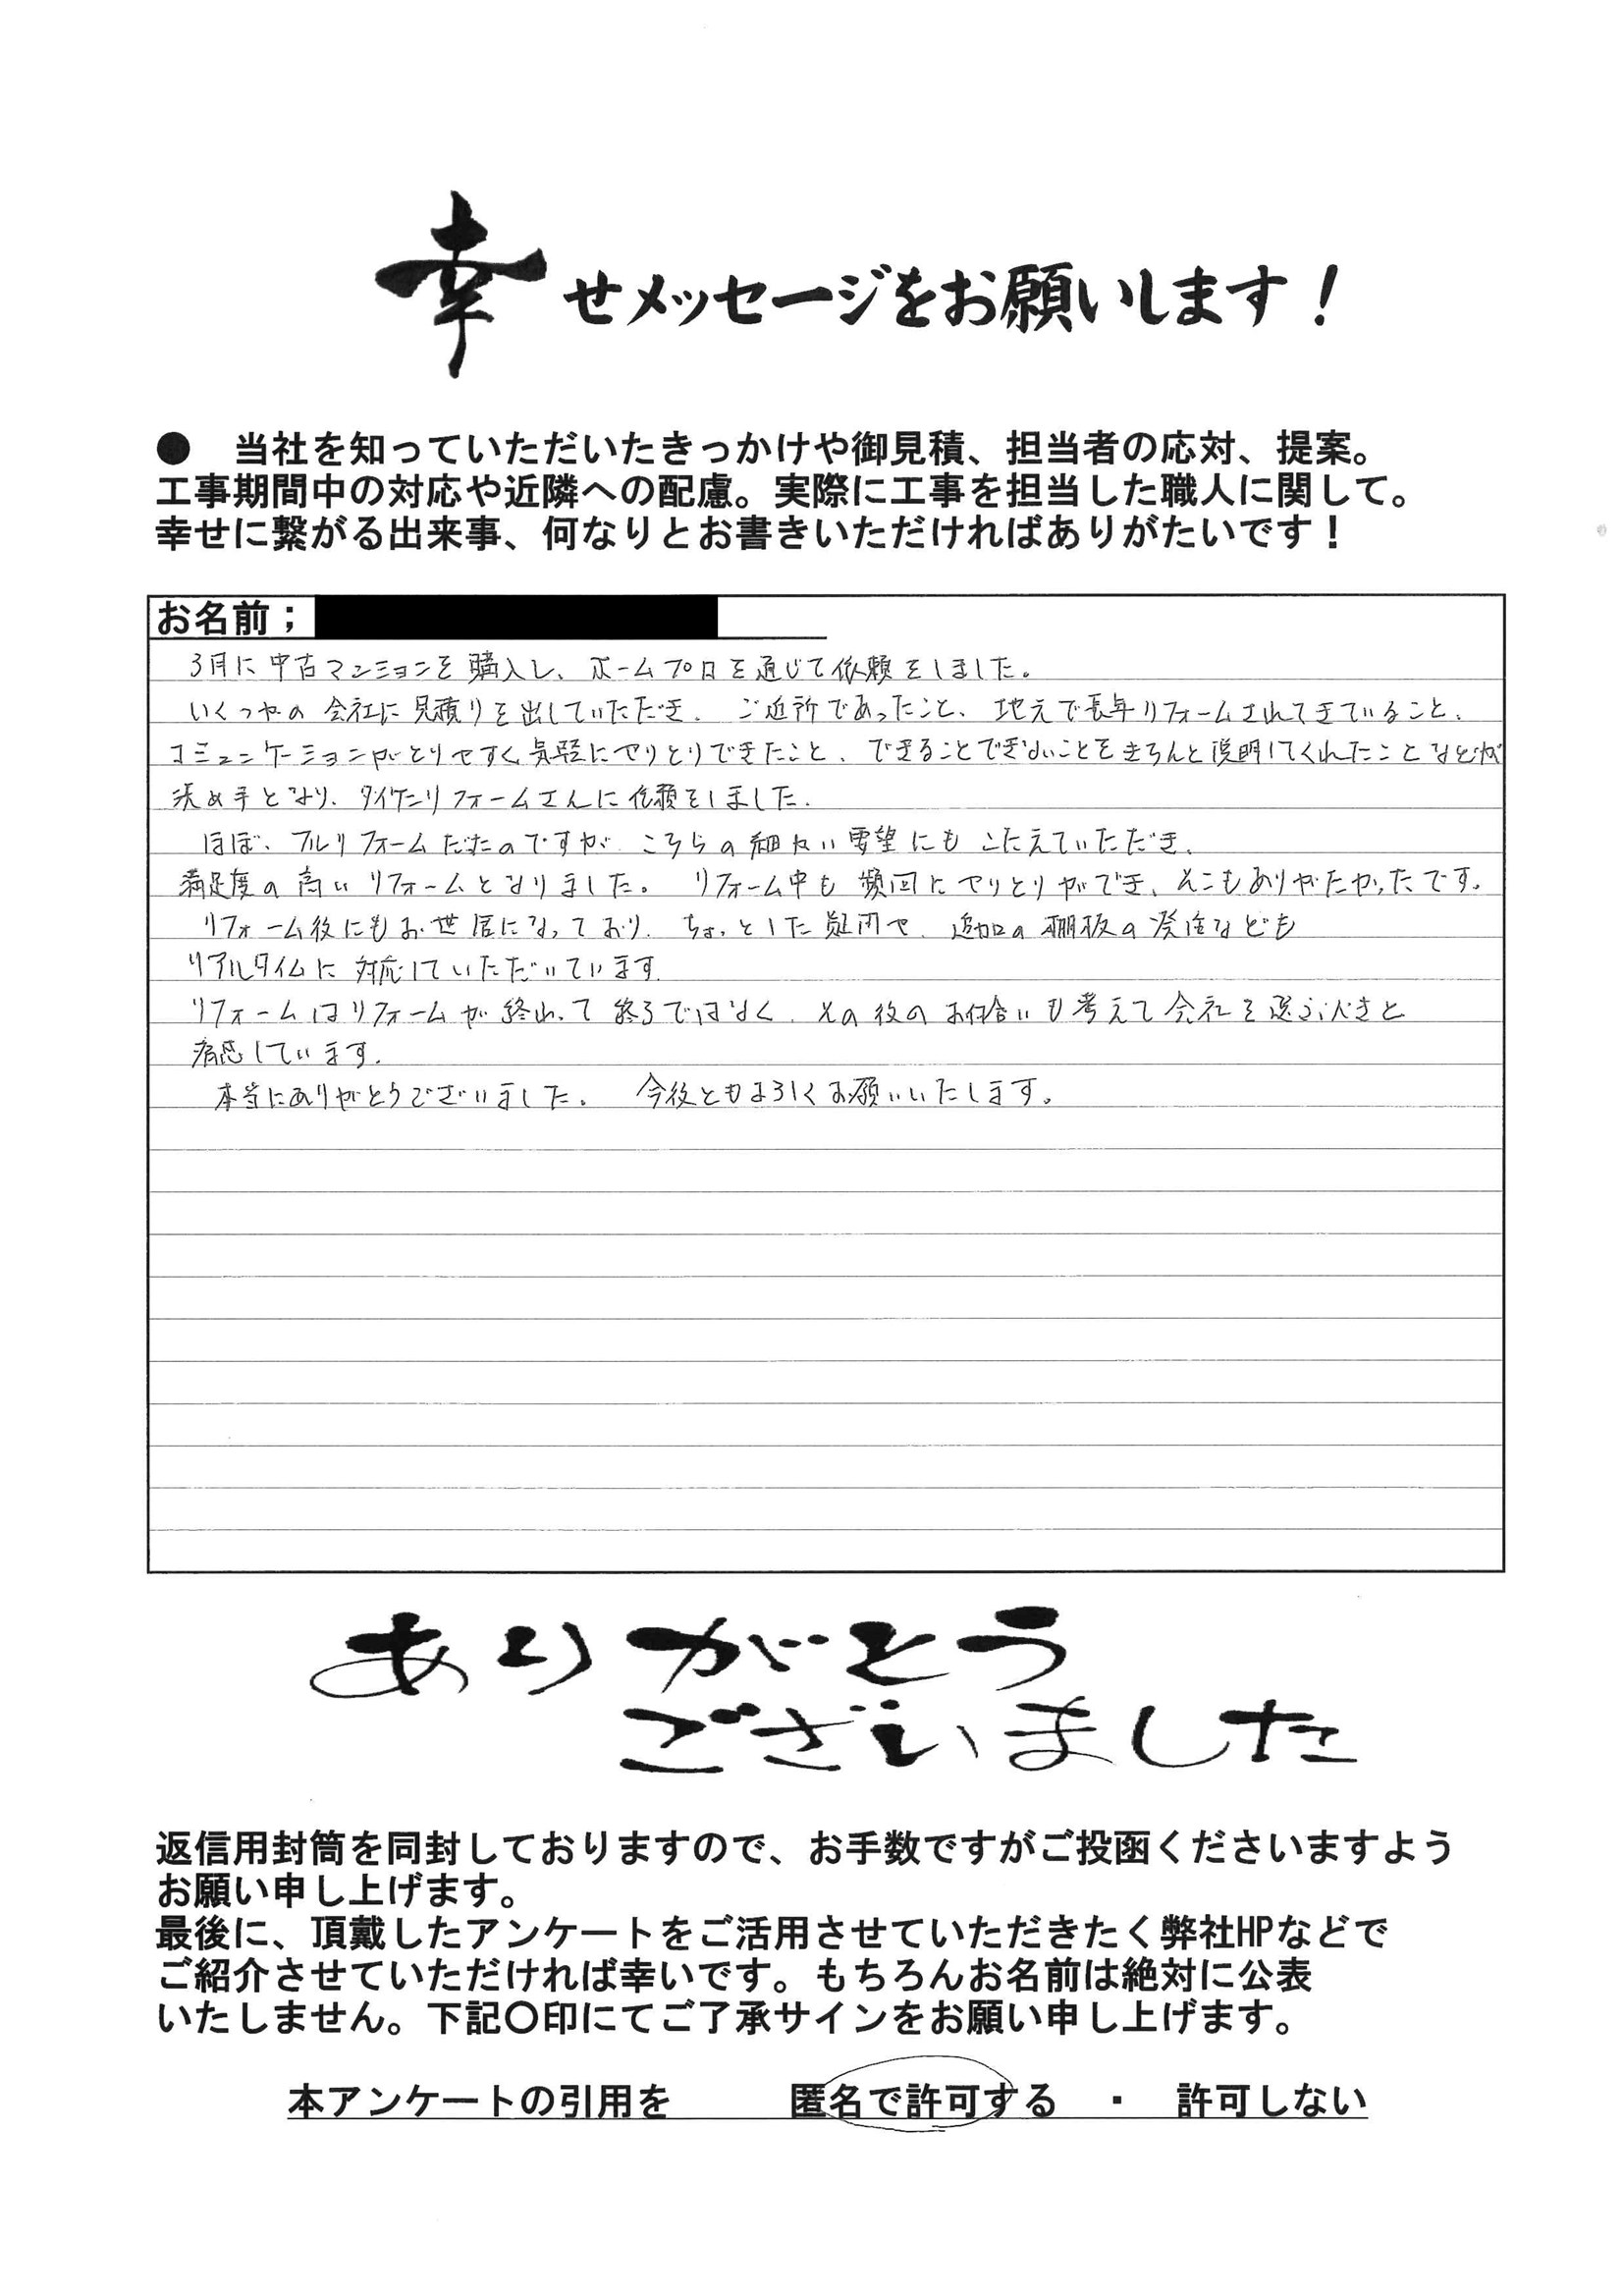 幸せメッセージをお願いします！
● 当社を知っていただいたきっかけや御見積、担当者の応対、提案。
工事期間中の対応や近隣への配慮。実際に工事を担当した職人に関して。
幸せに繋がる出来事、何なりとお書きいただければありがたいです！
お名前；
3月に中古マンションを購入し、ホームプロを通じて依頼をしました。
いくつかの会社に見積りを出していただき、ご近所であったこと、地元で長年リフォームされてきていること、
コミュニケーションがとりやすく気軽にやりとりできたこと、できることできないことをきちんと説明してくれたことなどが
決め手となり、タイケンリフォームさんに依頼をしました。
ほぼ、フルリフォームだったのですが こちらの細かい要望にもこたえていただき、
満足度の高いリフォームとなりました。リフォーム中も頻回にやりとりができ、そこもありがたかったです。
リフォーム後にもお世話になっており、ちょっとした疑問や、追加の棚板の発注なども
リアルタイムに対応していただいています。
リフォームはリフォームが終わって終るではなく、その後のお付合いも考えて会社を選ぶべきと
痛感しています。
本当にありがとうございました。 今後ともよろしくお願いいたします。
ありがとう
ございました
返信用封筒を同封しておりますので、お手数ですがご投函くださいますよう
お願い申し上げます。
最後に、頂戴したアンケートをご活用させていただきたく弊社HPなどで
ご紹介させていただければ幸いです。もちろんお名前は絶対に公表
いたしません。下記〇印にてご了承サインをお願い申し上げます。
本アンケートの引用を 匿名で許可する ・ 許可しない